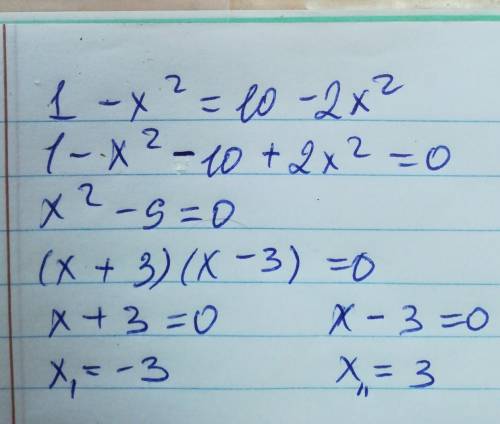 1 - x² = 10 - 2x²
1 - x² - 10 + 2x² = 0
x² - 9 = 0
(x + 3)(x - 3) = 0
x + 3 = 0 x - 3 = 0
x₁ = -3 x₁₁ = 3